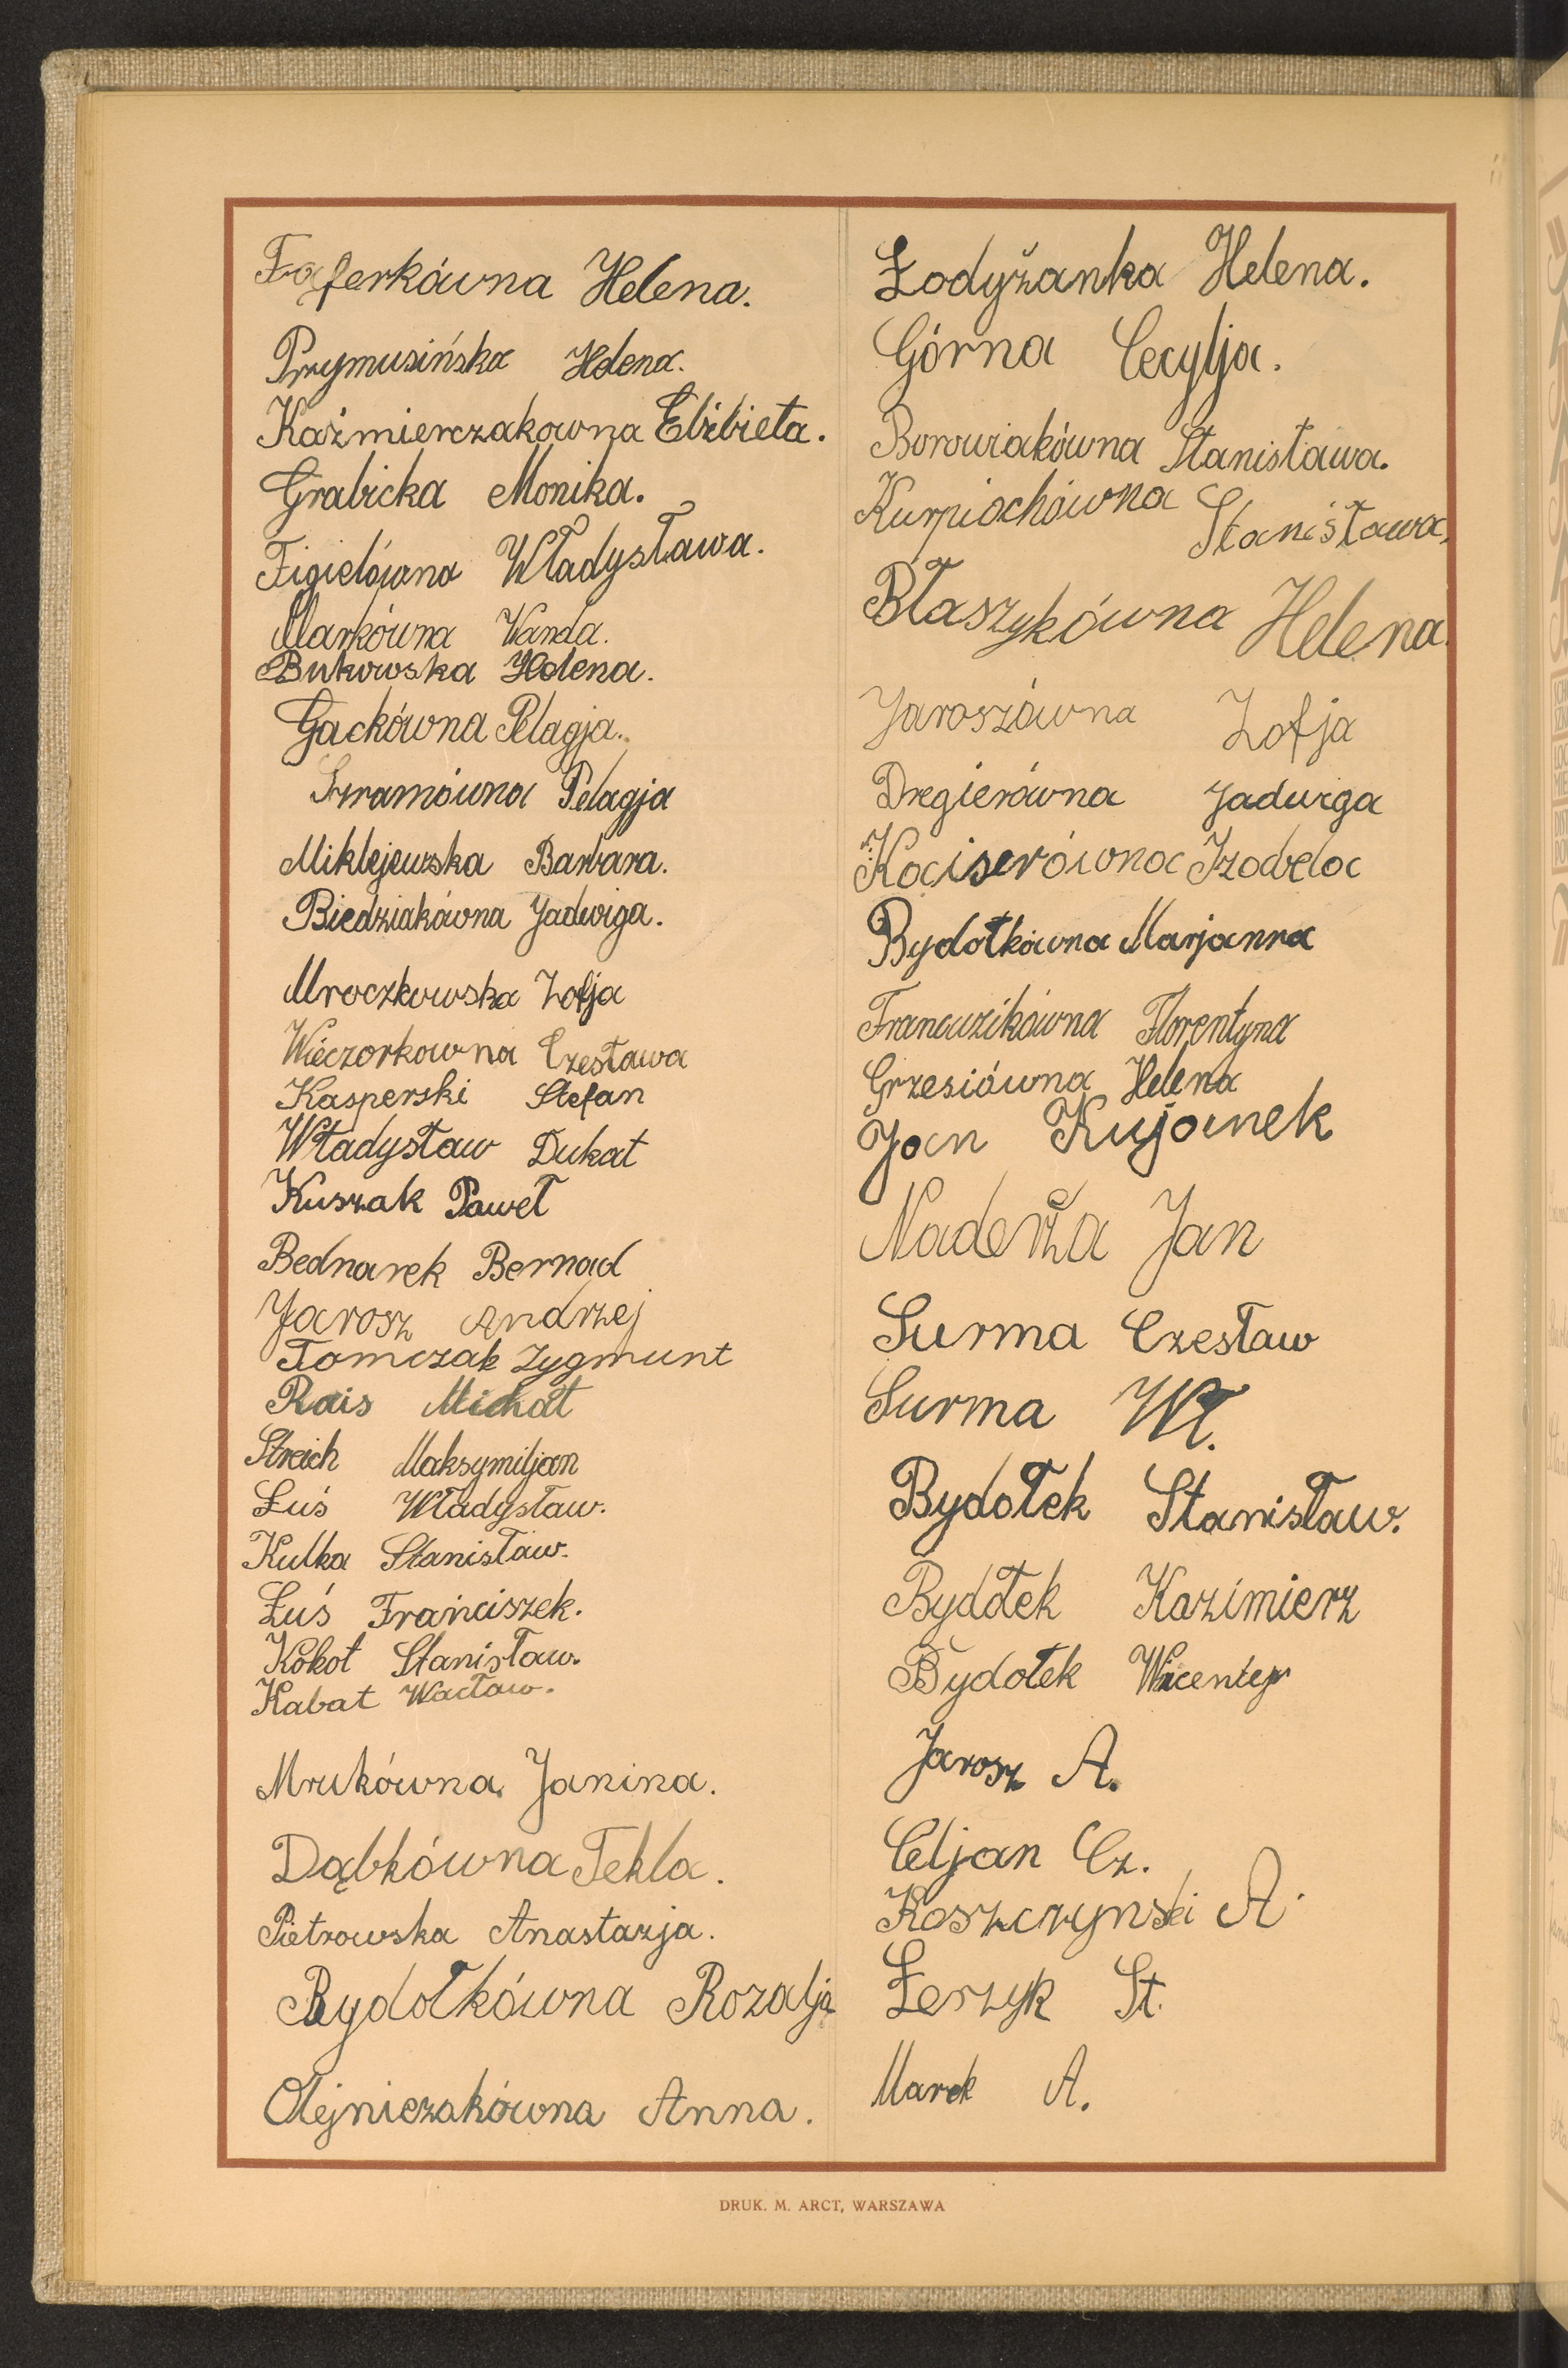 Fąferkówna Helena.
Przymusińska Helena.
Kaźmierczakowna Elżbieta.
Grabicka Monika.
Figielówna Władysława.
Markówna Wanda.
Bukowska Helena.
Gackówna Pelagja.
Szramówna Pelagja
Miklejewska Barbara.
Biedziakówna Jadwiga.
Mroczkowska Zofja
Wieczorkowna Czesława
Kasperski Stefan
Władysław Dukat
Kuszak Paweł
Bednarek Bernad
Jarosz Andrzej
Tomczak Zygmunt
Rais Michał
Streich Maksymiljan
Łuś Władysław.
Kulka Stanisław.
Łuś Franciszek.
Kokot Stanisław.
Kabat Wacław.
Mrukówna Janina.
Dąbkówna Tekla.
Pietrowska Anastazja.
Bydołkówna Rozalja
Olejniczakówna Anna.
Łodyżanka Helena.
Górna Cecylja.
Borowiakówna Stanisława.
Kurpiochówna Stanisława,
Błaszykówna Helena.
Jaroszówna Zofja
Dregierówna Jadwiga
Kociserówna Izabela
Bydołkówna Marjanna
Francuzikówna Florentyna
Grzesiówna Helena
Jan Kujanek
Nadeża Jan
Surma Czesław
Surma Wł.
Bydołek Stanisław.
Bydołek Kazimierz
Bydołek Wicenty
Jarosz A.
Celjan Cz.
Koszczynski A.
Łeszyk St.
Marek A.
DRUK. M. ARCT, WARSZAWA